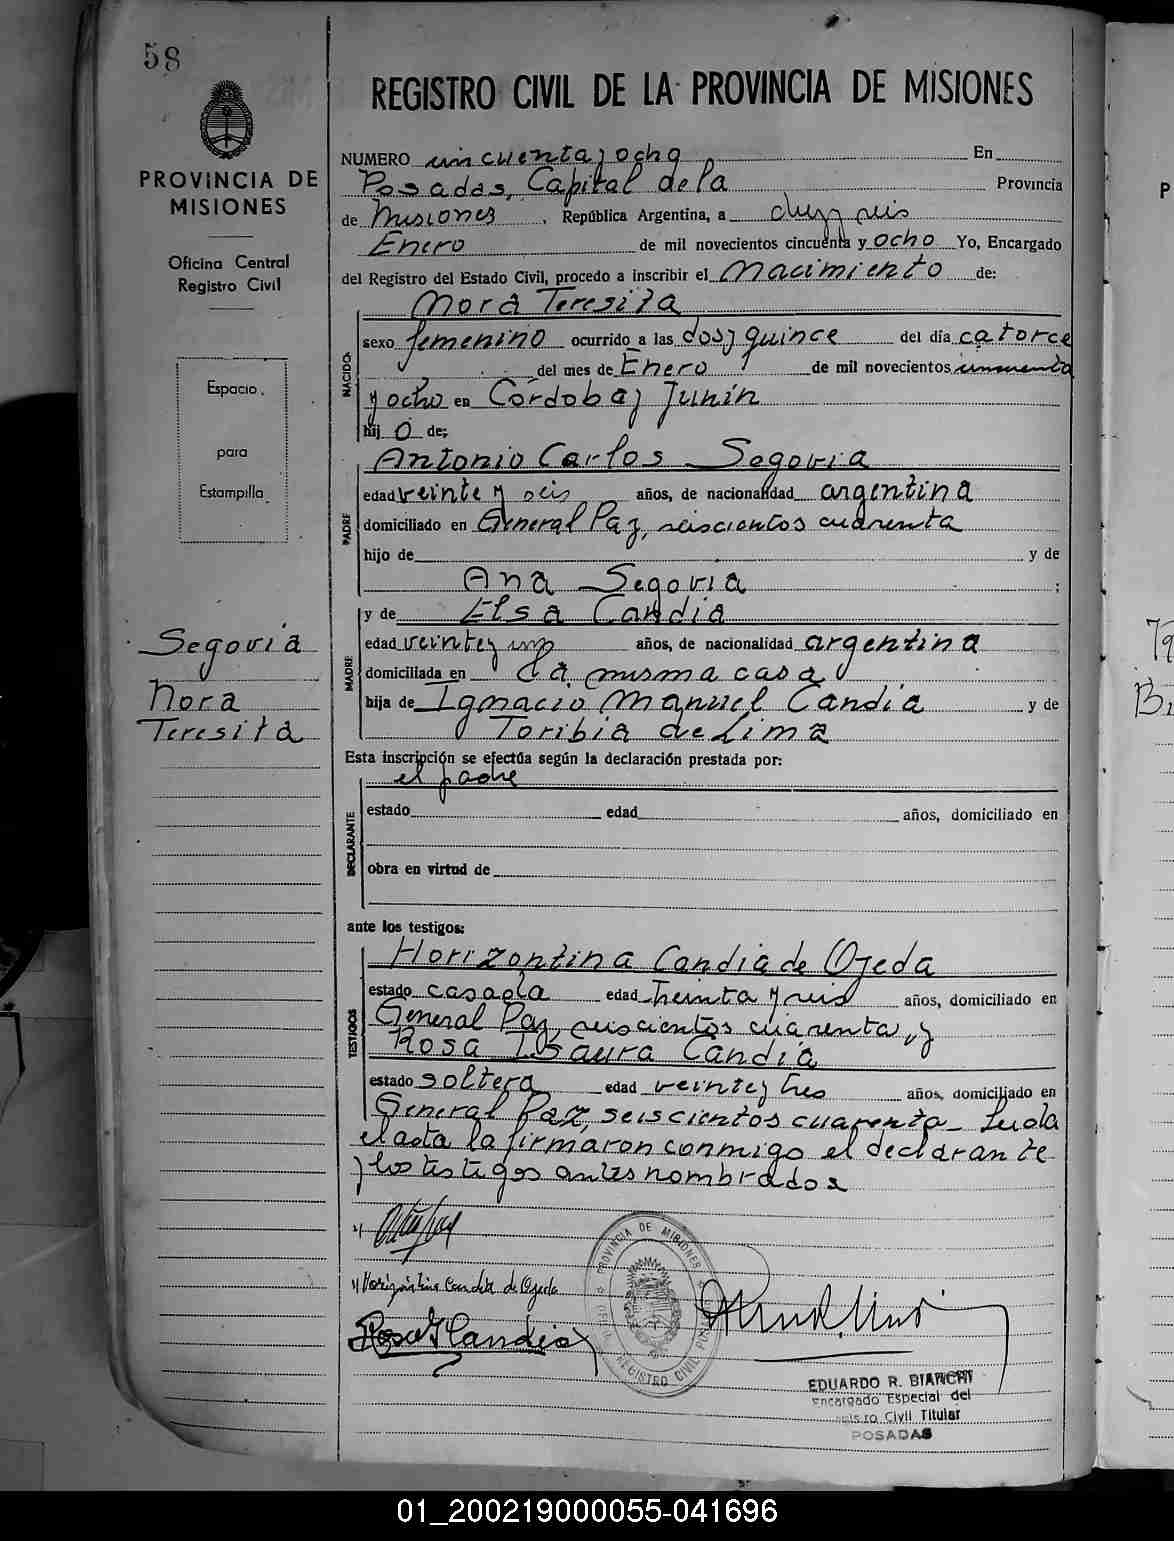 58
REGISTRO CIVIL DE LA PROVINCIA DE MISIONES
PROVINCIA DE
MISIONES
Oficina Central
Registro Civil
Espacio
para
Estampilla
Segovia
Nora
Teresita
NUMERO cincuenta y ocho En
Posadas, Capital de la Provincia
de Misiones, República Argentina, a diez y seis
Enero de mil novecientos cincuenta y ocho Yo, Encargado
del Registro del Estado Civil, procedo a inscribir el Nacimiento de:
NACIDO
Nora Teresita
sexo femenino ocurrido a las dos y quince del día catorce
del mes de Enero de mil novecientos cincuenta
y ocho en Córdoba y Junín
hij o de:
PADRE
Antonio Carlos Segovia
edad veinte y seis años, de nacionalidad argentina
domiciliado en General Paz, seiscientos cuarenta
hijo de y de
Ana Segovia ;
MADRE
y de Elsa Candia
edad veinte y uno años, de nacionalidad argentina
domiciliada en la misma casa
hija de Ignacio Manuel Candia y de
Toribia de Lima
Esta inscripción se efectúa según la declaración prestada por:
DECLARANTE
el padre
estado edad años, domiciliado en
obra en virtud de
ante los testigos:
TESTIGOS
Horizontina Candia de Ojeda
estado casada edad treinta y seis años, domiciliado en
General Paz, seiscientos cuarenta, y
Rosa Isaura Candia
estado soltera edad veinte y tres años, domiciliado en
General Paz, seiscientos cuarenta_ Leida
el acta la firmaron conmigo el declarante
y los testigos antes nombrados
Horizontina Candia de Ojeda
Rosa I Candia
PROVINCIA DE MISIONES
REGISTRO CIVIL
EDUARDO R. BIANCHI
Encargado Especial del
Registro Civil Titular
POSADAS
01_200219000055-041696